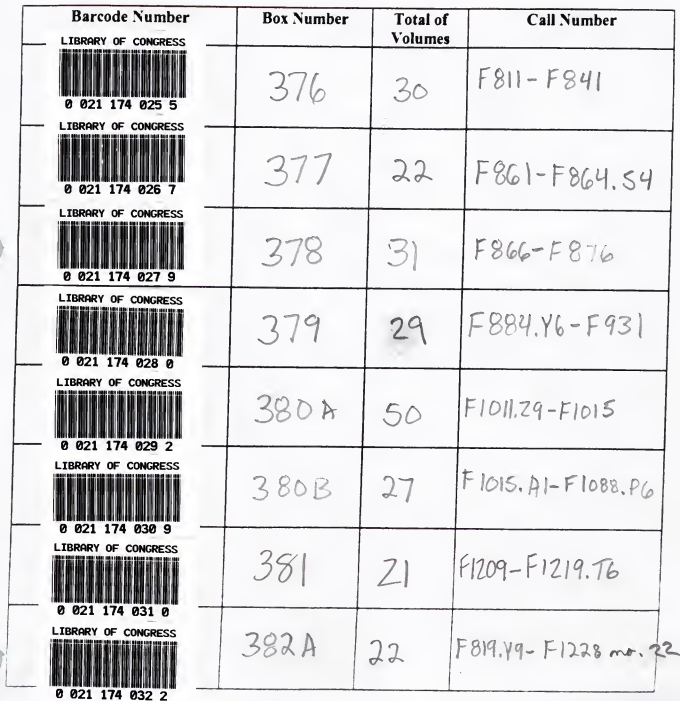 Barcode Number Box Number Total of Volumes Call Number
LIBRARY OF CONGRESS
0 021 174 025 5
376 30 F811-F841
LIBRARY OF CONGRESS
0 021 174 026 7
377 22 F861-F864.S4
LIBRARY OF CONGRESS
0 021 174 027 9
378 31 F866-F876
LIBRARY OF CONGRESS
0 021 174 028 0
379 29 F884.Y6-F931
LIBRARY OF CONGRESS
0 021 174 029 2
380A 50 F1011.Z9-F1015
LIBRARY OF CONGRESS
0 021 174 030 9
380B 27 F1015.A1-F1088.P6
LIBRARY OF CONGRESS
0 021 174 031 0
381 21 F1209-F1219.T6
LIBRARY OF CONGRESS
0 021 174 032 2
382A 22 F819.Y9-F1228 mo. 22